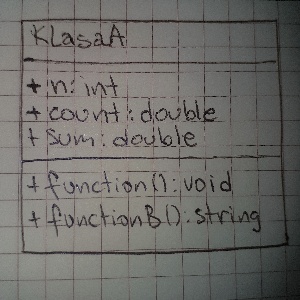 KLasaA
+ n: int
+ count: double
+ sum: double
+ function(): void
+ functionB(): string